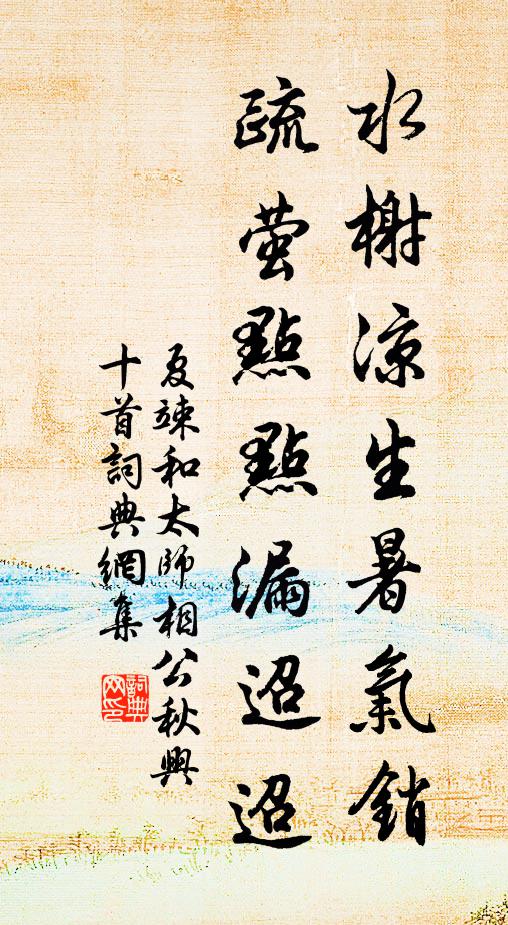 水榭凉生暑氣銷
疏萤點點漏迢迢
夏竦和太師相公秋興
十首詞典網集
詞典
网印